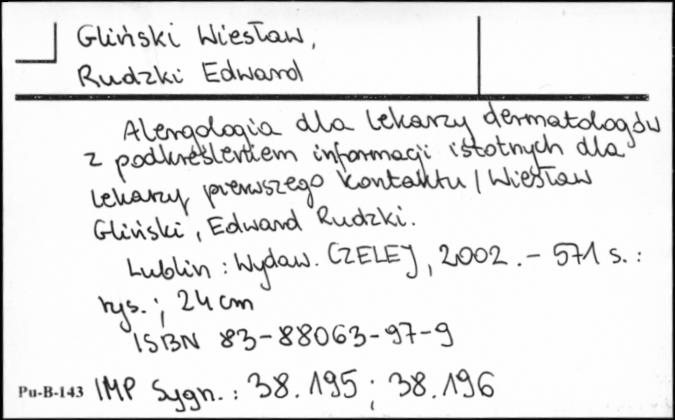 Gliński Wiesław,
Rudzki Edward
Alergologia dla lekarzy dermatologów
z podkreśleniem informacji istotnych dla
lekarzy pierwszego kontaktu / Wiesław
Gliński, Edward Rudzki.
Lublin : Wydaw. CZELEJ, 2002. - 571 s. :
rys. ; 24 cm
ISBN 83-88063-97-9
Pu-B-143 IMP Sygn. : 38.195 ; 38.196